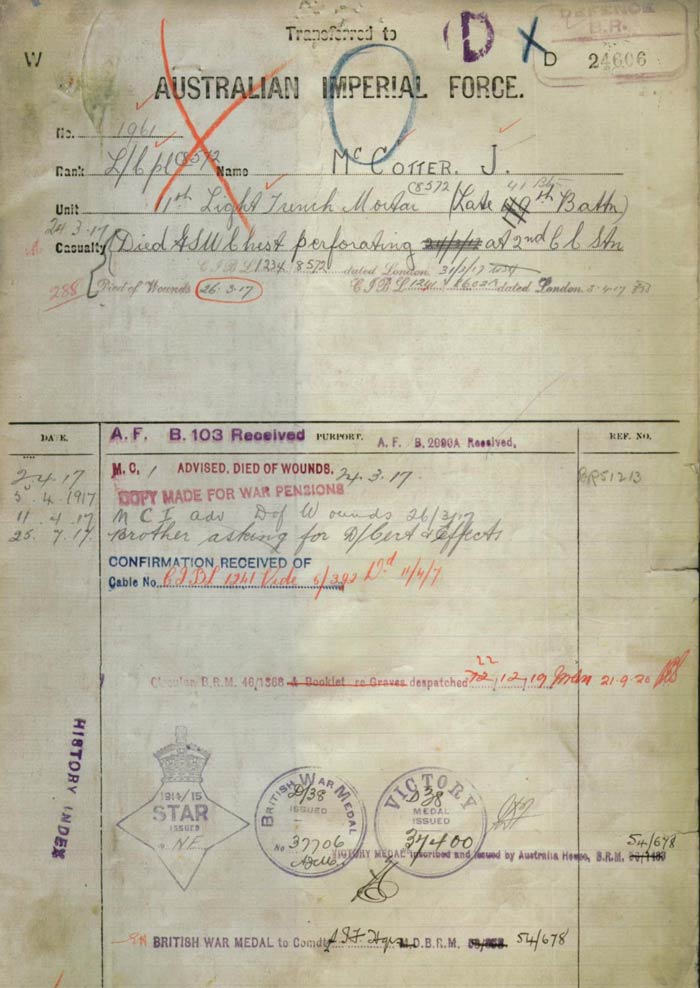 Transferred to
D
X
DEFENCE
B.R.
W
D 24606
AUSTRALIAN IMPERIAL FORCE.
No. 1961
Rank L/Cpl 8572 Name McCOTTER. J.
(8572 41 Bn
Unit 11th Light Trench Mortar (Late th Battn)
24 3.17
Casualty (Died GSW Chest perforating 24/3/17 at 2nd C C Stn
C I B L 1234 8572 dated London. 31/3/17
288 Died of Wounds 26.3.17 C I B L 1241 dated London. 5.4.17
DATE. A. F. B. 103 Received PURPORT. A. F. B. 2090A Received. REF. NO.
2 4.17 M. C. 1 ADVISED. DIED OF WOUNDS. 24.3.17. BR51213
5. 4. 1917 COPY MADE FOR WAR PENSIONS
11 4 17 M C I adv D of Wounds 26/3/17
25. 7.17 Brother asking for D/Cert & Effects
CONFIRMATION RECEIVED OF
Cable No. C I B L 1241 Vide 5/392 Dd 11/4/7
22
Circular, B.R.M. 46/1368 & Booklet re Graves despatched 12.12.19 21-9-20
HISTORY INDEX
1914/15
STAR
ISSUED
No. NE
BRITISH WAR MEDAL
D/38
ISSUED
No 37706
VICTORY
D 38
MEDAL
ISSUED
37400
54/678
VICTORY MEDAL inscribed and issued by Australia House, B.R.M.
BRITISH WAR MEDAL to Comdt A.I.F. Hqrs M.D.B.R.M. 54/678